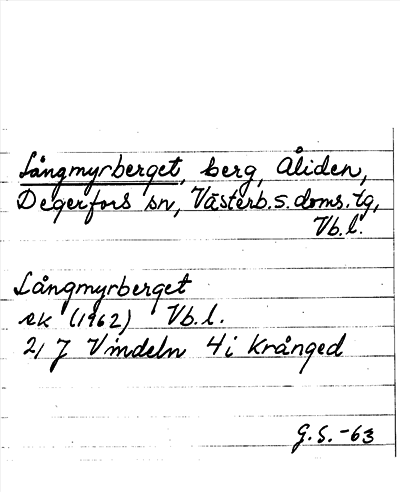 Långmyrberget, berg, Åliden,
Degerfors sn, Västerb.s.doms.tg,
Vb.l.
Långmyrberget
ek (1962) Vb.l.
21 J Vindeln 4i Krånged
G.S.-63